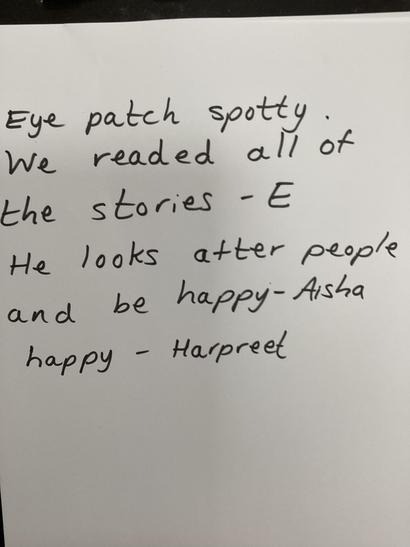 Eye patch spotty.
We readed all of
the stories - E
He looks after people
and be happy - Aisha
happy - Harpreet